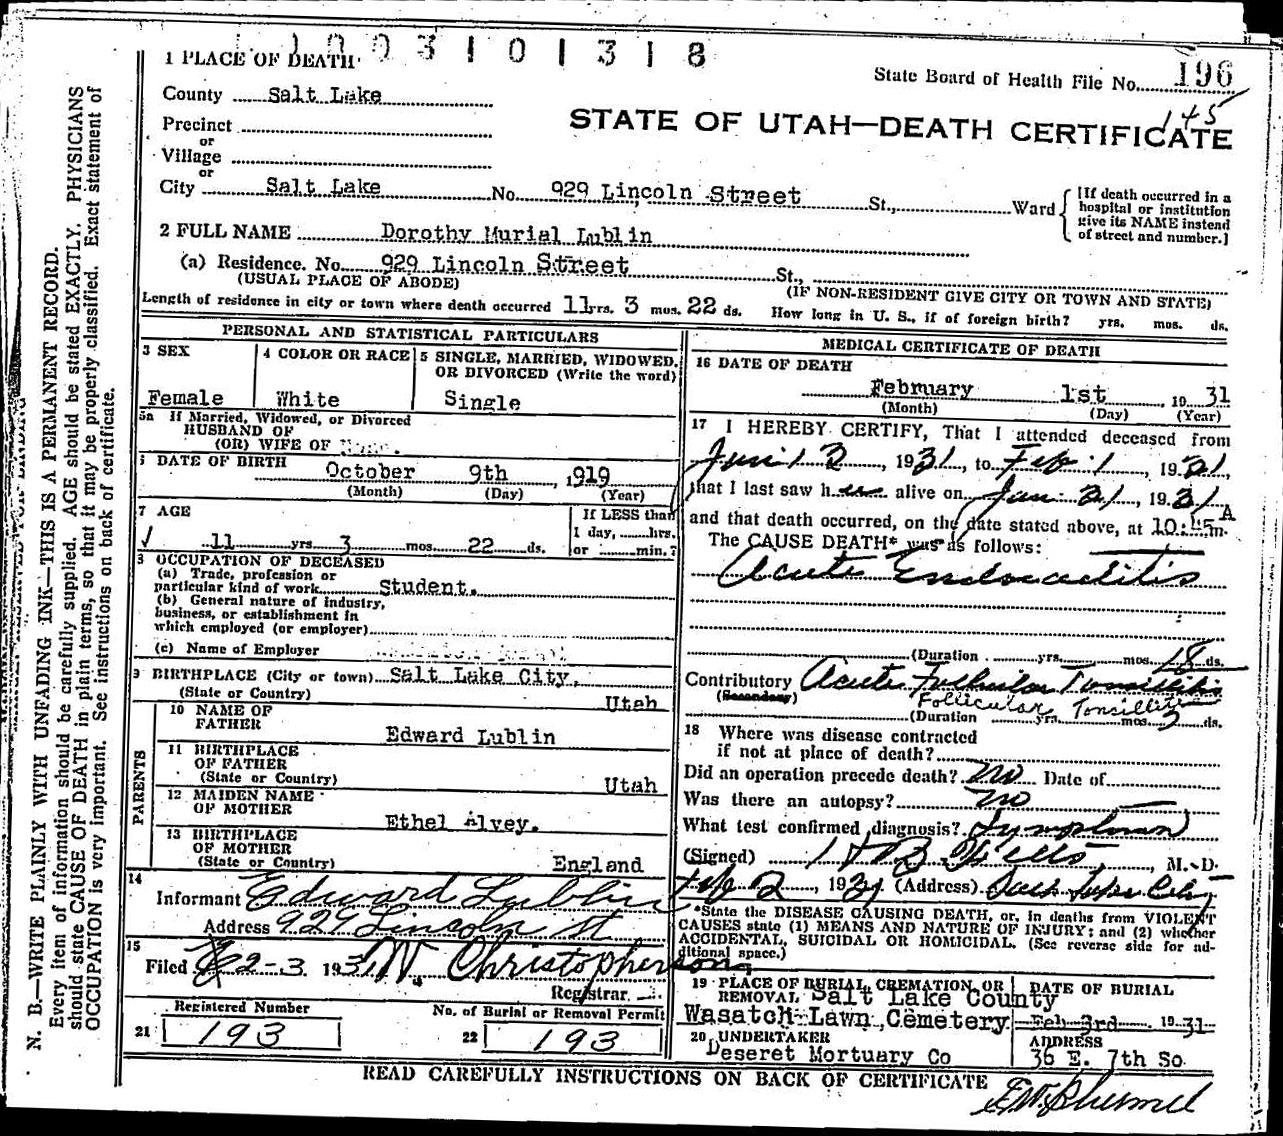 1003101318
1 PLACE OF DEATH
State Board of Health File No. 196
145
County Salt Lake
STATE OF UTAH—DEATH CERTIFICATE
Precinct
or
Village
or
City Salt Lake No. 929 Lincoln Street St., Ward
[If death occurred in a
hospital or institution
give its NAME instead
of street and number.]
2 FULL NAME Dorothy Murial Lublin
(a) Residence. No. 929 Lincoln Street St.,
(USUAL PLACE OF ABODE) (IF NON-RESIDENT GIVE CITY OR TOWN AND STATE)
Length of residence in city or town where death occurred 11 yrs. 3 mos. 22 ds. How long in U. S., if of foreign birth? yrs. mos. ds.
PERSONAL AND STATISTICAL PARTICULARS
3 SEX
Female
4 COLOR OR RACE
White
5 SINGLE, MARRIED, WIDOWED,
OR DIVORCED (Write the word)
Single
5a If Married, Widowed, or Divorced
HUSBAND OF
(OR) WIFE OF None.
6 DATE OF BIRTH
October 9th, 1919
(Month) (Day) (Year)
7 AGE
11 yrs 3 mos. 22 ds.
If LESS than
1 day, hrs.
or min.?
8 OCCUPATION OF DECEASED
(a) Trade, profession or
particular kind of work Student.
(b) General nature of industry,
business, or establishment in
which employed (or employer)
(c) Name of Employer
9 BIRTHPLACE (City or town) Salt Lake City,
(State or Country) Utah
PARENTS
10 NAME OF
FATHER Edward Lublin
11 BIRTHPLACE
OF FATHER
(State or Country) Utah
12 MAIDEN NAME
OF MOTHER Ethel Alvey.
13 BIRTHPLACE
OF MOTHER
(State or Country) England
14
Informant Edward Lublin
Address 929 Lincoln St
15
Filed 2-3 1931 W. Christopherson
Registrar.
Registered Number
21 193
No. of Burial or Removal Permit
22 193
MEDICAL CERTIFICATE OF DEATH
16 DATE OF DEATH
February 1st, 19 31
(Month) (Day) (Year)
17 I HEREBY CERTIFY, That I attended deceased from
Jan 13, 1931, to Feb 1, 1931,
that I last saw her alive on Jan 31, 1931
and that death occurred, on the date stated above, at 10:45 A m.
The CAUSE DEATH* was as follows:
Acute Endocarditis
(Duration yrs. mos. 18 ds.
Contributory Acute Follicular Tonsillitis
(Secondary) Follicular Tonsillitis
(Duration yrs. mos. 3 ds.
18 Where was disease contracted
if not at place of death?
Did an operation precede death? no Date of
Was there an autopsy? no
What test confirmed diagnosis? Symptoms
(Signed) M. D.
Feb 2, 1931 (Address) Salt Lake City
*State the DISEASE CAUSING DEATH, or, in deaths from VIOLENT
CAUSES state (1) MEANS AND NATURE OF INJURY; and (2) whether
ACCIDENTAL, SUICIDAL OR HOMICIDAL. (See reverse side for ad-
ditional space.)
19 PLACE OF BURIAL, CREMATION, OR
REMOVAL Salt Lake County
Wasatch Lawn Cemetery
DATE OF BURIAL
Feb 3rd 19 31
20 UNDERTAKER
Deseret Mortuary Co
ADDRESS
36 E. 7th So
READ CAREFULLY INSTRUCTIONS ON BACK OF CERTIFICATE
N. B.—WRITE PLAINLY WITH UNFADING INK—THIS IS A PERMANENT RECORD.
Every item of information should be carefully supplied. AGE should be stated EXACTLY. PHYSICIANS
should state CAUSE OF DEATH in plain terms, so that it may be properly classified. Exact statement of
OCCUPATION is very important. See instructions on back of certificate.